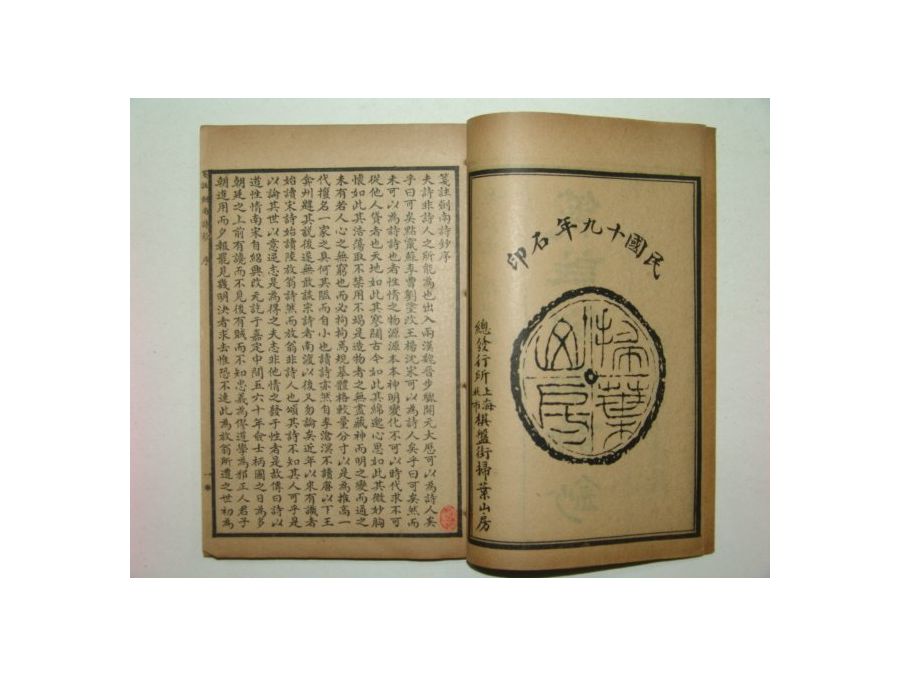 民國十九年石印
掃葉山房
總發行所上海北市棋盤街掃葉山房
箋註劍南詩鈔序
夫詩非詩人之所能為也出入兩漢魏晉步驟開元大厯可以為詩人矣
乎曰可矣點竄蘇李曹劉塗改王楊沈宋可以為詩人矣乎曰可矣然而
未可以為詩詩也者性情之物源源本本神明變化不可以時代求不可
從他人貸者也天地如此其寥闊古今如此其綿邈心思如此其微妙胸
懷如此其活蕩取不禁用不竭是造物者之無盡藏神而明之變而通之
未有若人心之無窮也而必拘拘焉規摹體格較量分寸以是為推高一
代擅名一家之具何其隘而自小也讀詩亦然自李滄溟不讀唐以下王
弇州韙其說後遂無敢談宋詩者南渡以後又勿論矣近年以來有識者
始讀宋詩始讀陸放翁詩然而放翁非詩人也頌其詩不知其人可乎是
以論其世以意逆志是為得之夫志非他情之發于性者是故傳曰詩以
道性情南宋自紹興改元訖于嘉定中間五六十年僉士柄國之日為多
朝廷之上前有讒而不見後有賊而不知忠義為偽道學為邪正人君子
朝進用而夕報罷見幾明決者求去惟恐不速此為放翁所遭之世初為
箋註劍南詩鈔 序